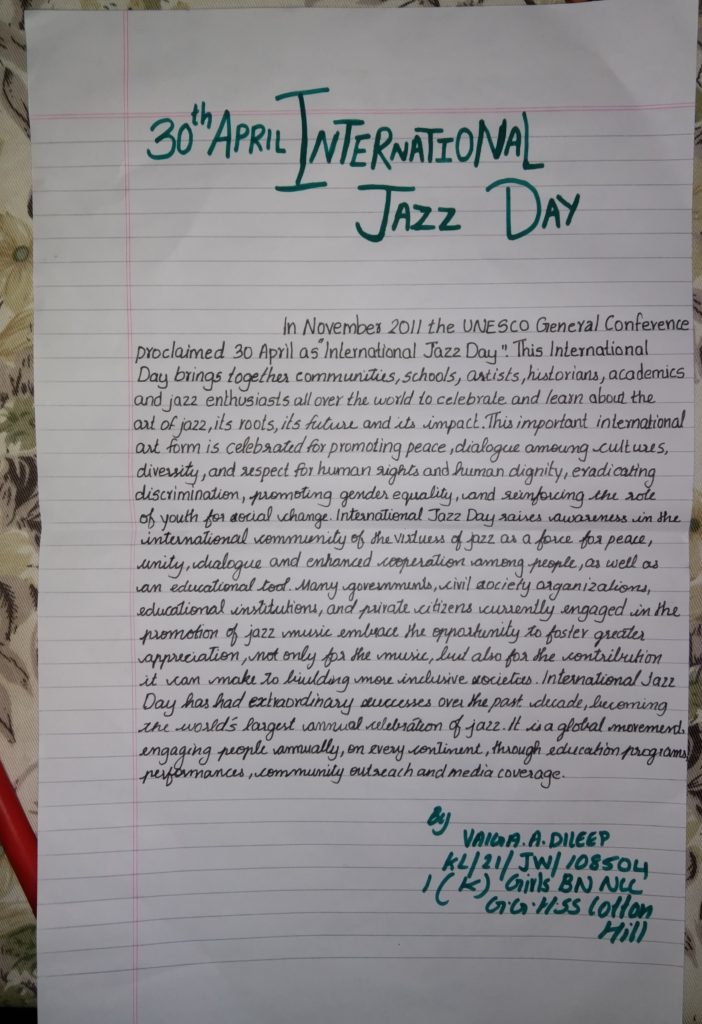 30th APRIL INTERNATIONAL
JAZZ DAY
In November 2011 the UNESCO General Conference
proclaimed 30 April as "International Jazz Day". This International
Day brings together communities, schools, artists, historians, academics
and jazz enthusiasts all over the world to celebrate and learn about the
art of jazz, its roots, its future and its impact. This important international
art form is celebrated for promoting peace, dialogue amoung cultures,
diversity, and respect for human rights and human dignity, eradicating
discrimination, promoting gender equality, and reinforcing the role
of youth for social change. International Jazz Day raises awareness in the
international community of the virtues of jazz as a force for peace,
unity, dialogue and enhanced cooperation among people, as well as
an educational tool. Many governments, civil society organizations,
educational institutions, and private citizens currently engaged in the
promotion of jazz music embrace the opportunity to foster greater
appreciation, not only for the music, but also for the contribution
it can make to biulding more inclusive societies. International Jazz
Day has had extraordinary successes over the past decade, becoming
the world's largest annual celebration of jazz. It is a global movement
engaging people annually, on every continent, through education programs
performances, community outreach and media coverage.
By
VAIGA. A. DILEEP
KL/21/JW/108504
1 (K) Girls BN NCC
G.G.HSS Cotton
Hill